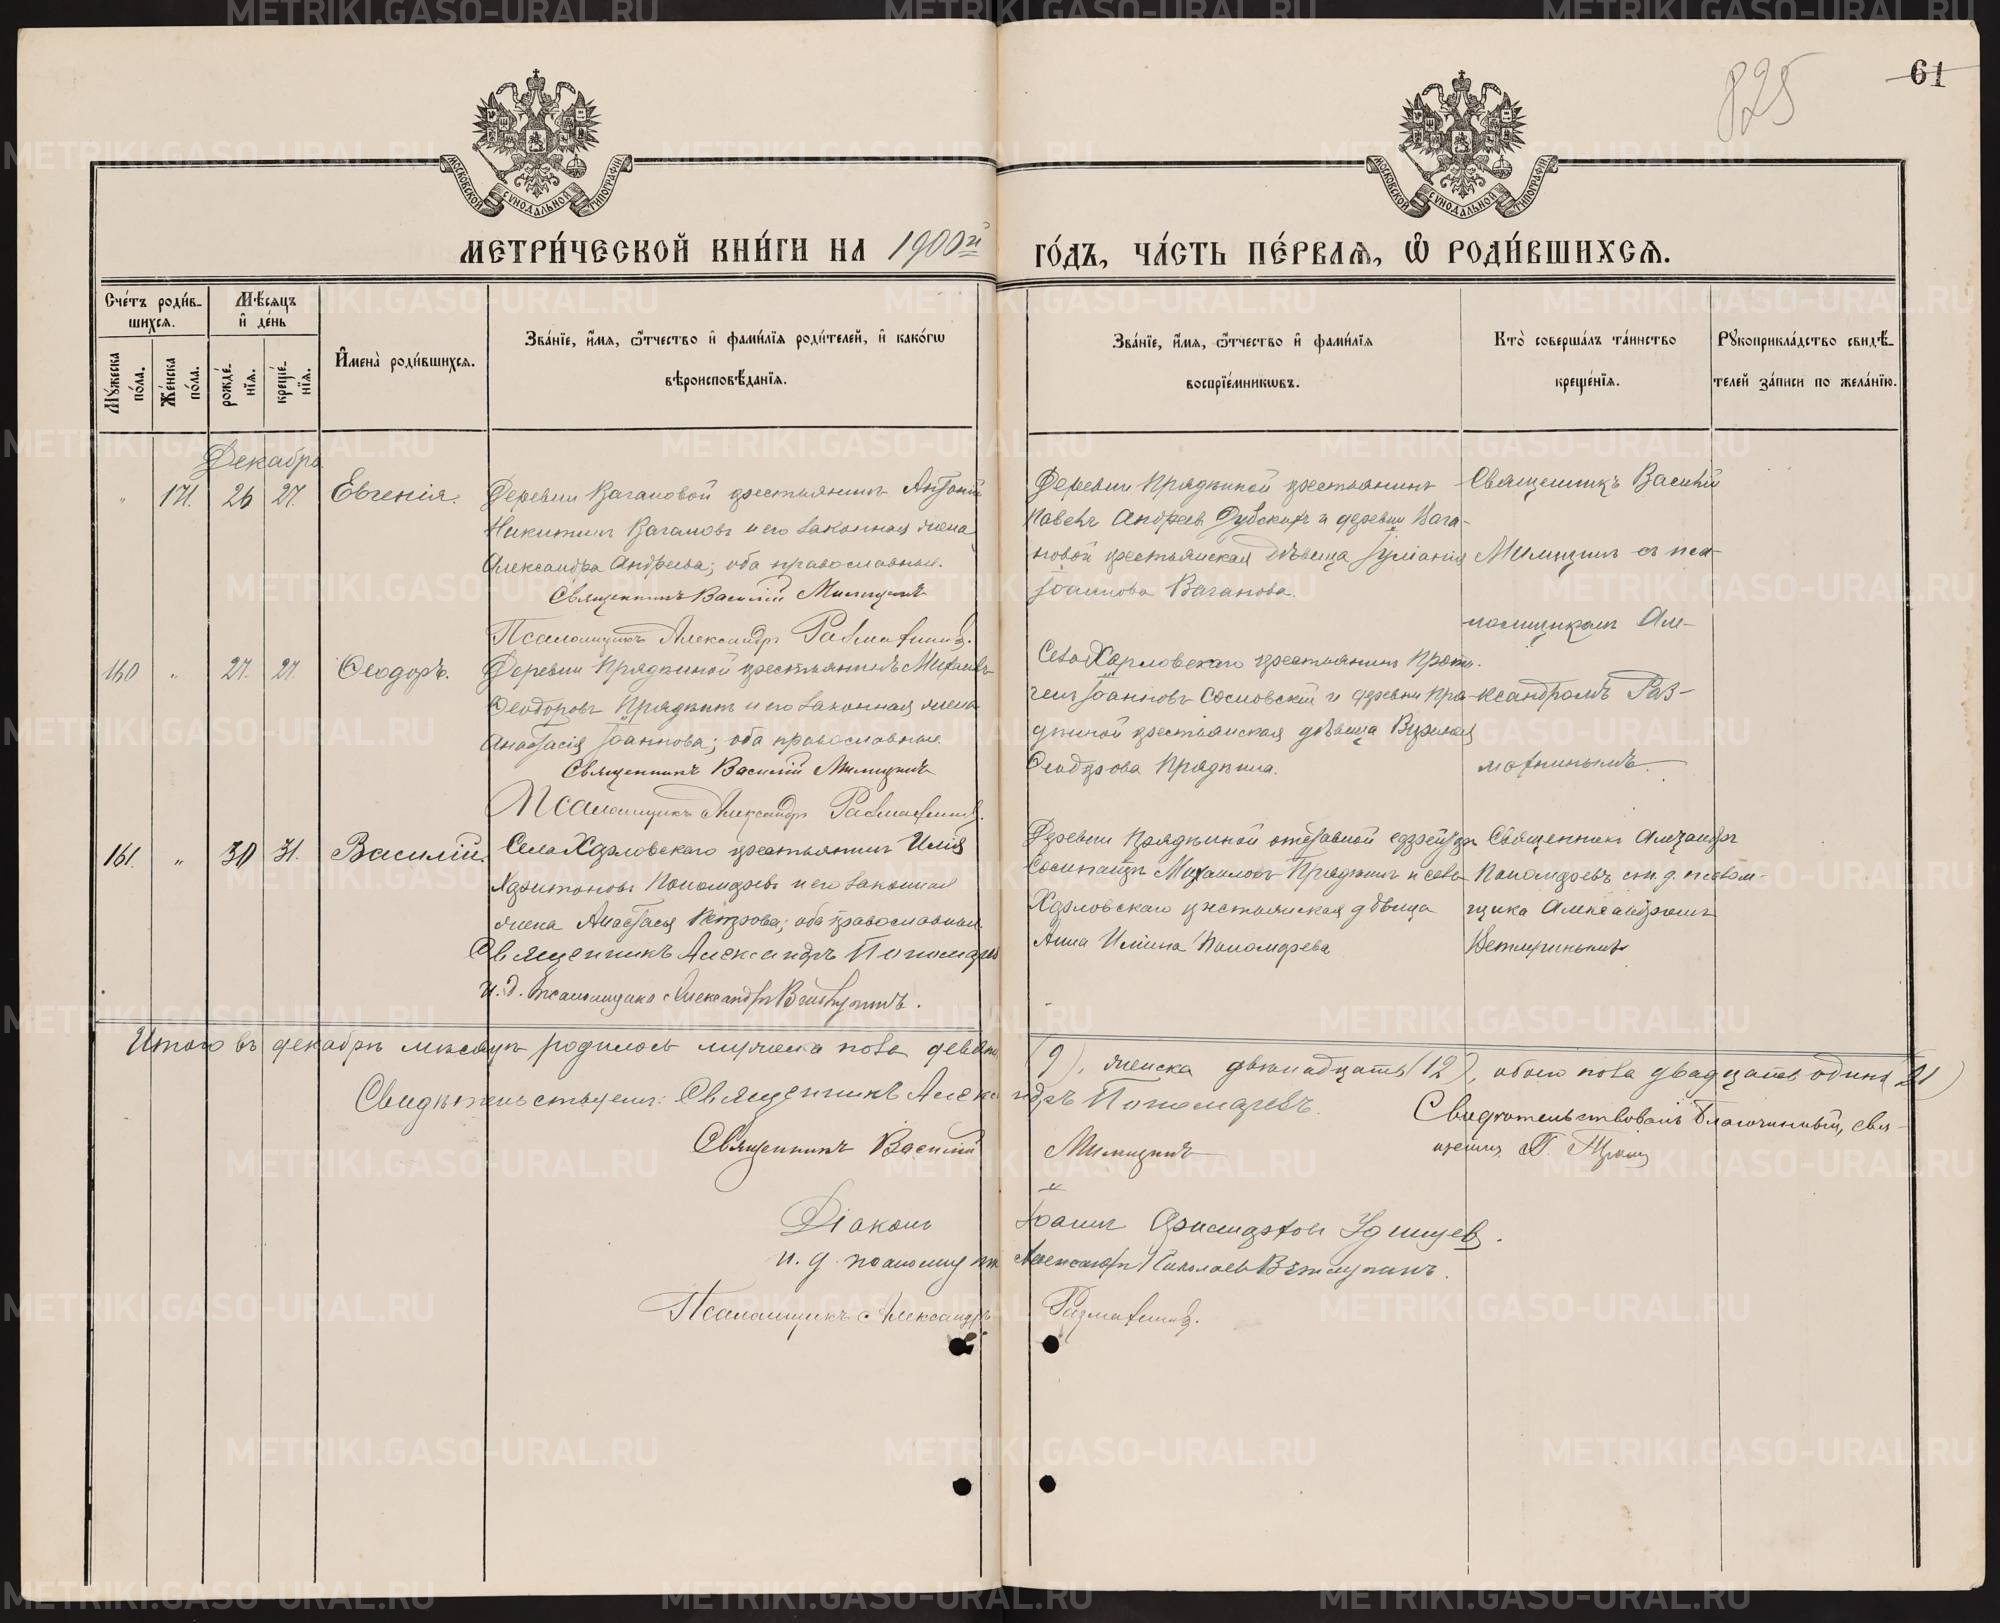 825
61
МОСКОВСКОЙ СѴНОДАЛЬНОЙ ТИПОГРАФІИ
МОСКОВСКОЙ СѴНОДАЛЬНОЙ ТИПОГРАФІИ
МЕТРИ́ЧЕСКОЙ КНИ́ГИ НА 1900й ГО́ДЪ, ЧА́СТЬ ПЕ́РВАѦ, Ѡ РОДИ́ВШИХСѦ.
Сче́тъ роди́в-
шихсѧ.
Мꙋжеска по́ла.
Же́нска по́ла.
Мѣ́сѧцъ
и҆ де́нь
рожде́нїѧ.
креще́нїѧ.
И҆мена̀ роди́вшихсѧ.
Зва́нїе, и҆́мѧ, ѻ҆́тчество и҆ фами́лїѧ роди́телей, и҆ како́гѡ
вѣроисповѣ́данїѧ.
Зва́нїе, и҆́мѧ, ѻ҆́тчество и҆ фами́лїѧ
воспрїе́мникѡвъ.
Кто̀ соверша́лъ та́инство
креще́нїѧ.
Рꙋкоприкла́дство свидѣ́-
телей за́писи по жела́нїю.
Декабрь
" 171. 26 27. Евгенія.
Деревни Вагановой крестьянинъ Антоній
Никитинъ Вагановъ и его законная жена
Александра Андреева; оба православные.
Священникъ Василій Милицинъ
Псаломщикъ Александръ Размахнинъ.
Деревни Прядкиной крестьянинъ
Павелъ Андреевъ Дубскихъ и деревни Вага-
новой крестьянская дѣвица Іуліанія
Іоаннова Ваганова.
Священникъ Василій
Милицинъ съ пса-
ломщикомъ Але-
ксандромъ Раз-
махнинымъ.
160 " 27. 27. Ѳеодоръ.
Деревни Прядкиной крестьянинъ Михаилъ
Ѳеодоровъ Прядкинъ и его законная жена
Анастасія Іоаннова; оба православные.
Священникъ Василій Милицинъ
Псаломщикъ Александръ Размахнинъ.
Села Харловскаго крестьянинъ
Іоанновъ Сосновскій и деревни Пря-
дкиной крестьянская дѣвица
Ѳеодорова Прядкина.
161. " 30 31. Василій.
Села Харловскаго крестьянинъ Илія
Харитоновъ Пономаревъ и его законная
жена Анастасія Петрова; оба православные.
Священникъ Александръ Пономаревъ
и. д. псаломщика Александръ Ветлугинъ.
Деревни Прядкиной отставной
Михаиловъ Прядкинъ и села
Харловскаго крестьянская дѣвица
Анна Иліина Пономарева
Священникъ Александръ
Пономаревъ съ и. д. псалом-
щика Александромъ
Ветлугинымъ
Итого въ декабрѣ мѣсяцѣ родилось мужеска пола девять (9), женска двѣнадцать (12), обоего пола двадцать одинъ (21)
Свидѣтельствуемъ: Священникъ Александръ Пономаревъ.
Свидѣтельствовалъ Благочинный, свя-
щенн.
Священникъ Василій Милицинъ
Діаконъ Іоаннъ Удинцевъ.
и. д. псаломщика Александръ Николаевъ Ветлугинъ.
Псаломщикъ Александръ Размахнинъ.
METRIKI.GASO-URAL.RU